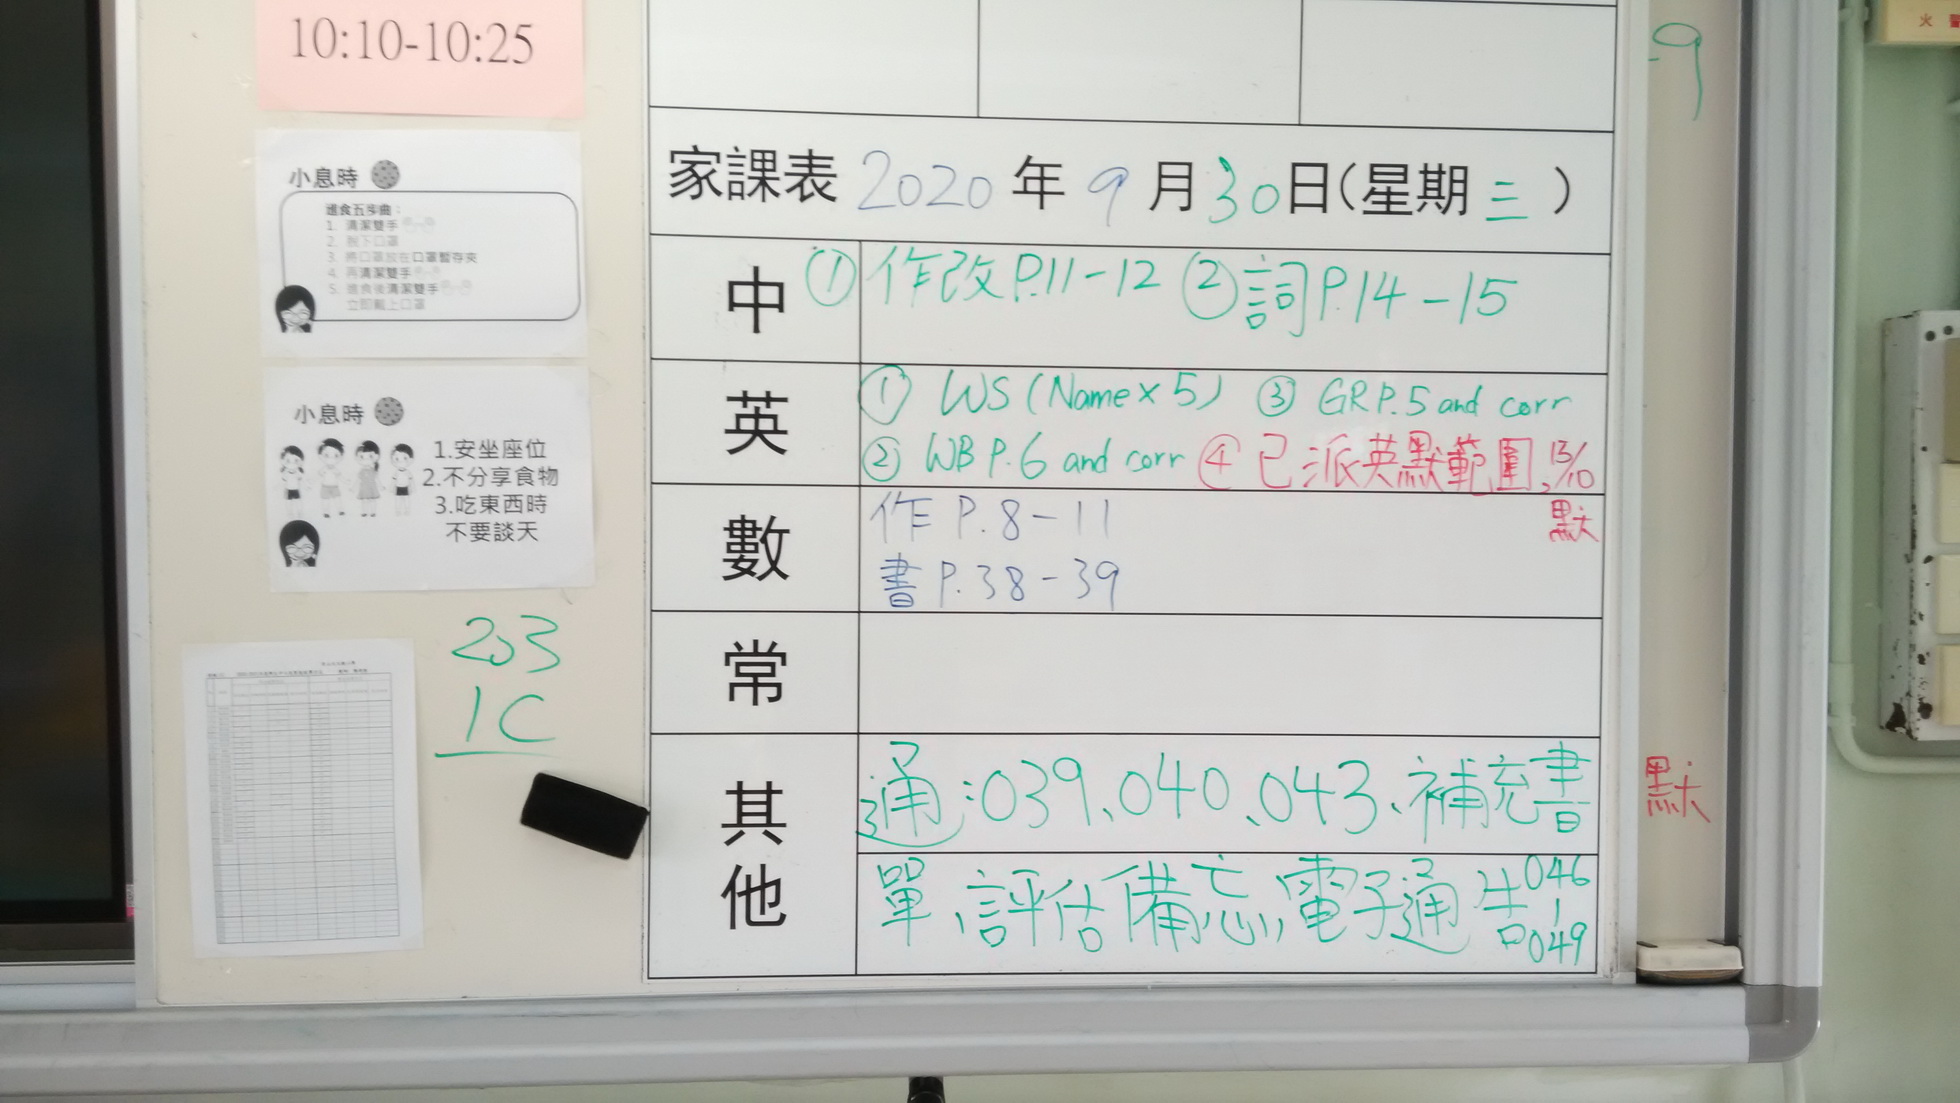 10:10-10:25
小息時
進食五步曲：
1. 清潔雙手
2. 脫下口罩
3. 將口罩放在口罩暫存夾
4. 再清潔雙手
5. 進食後清潔雙手
立即戴上口罩
小息時
1.安坐座位
2.不分享食物
3.吃東西時
不要談天
203
1C
家課表 2020 年 9 月 30 日(星期 三 )
中 ① 作改P.11-12 ② 詞P.14-15
英 ① WS (Name×5) ③ GR P.5 and corr
② WB P.6 and corr ④ 已派英默範圍, 13/10
默
數 作 P.8-11
書 P.38-39
常
其他 通:039、040、043、補充書
單、評估備忘、電子通告046-049
默
9
火